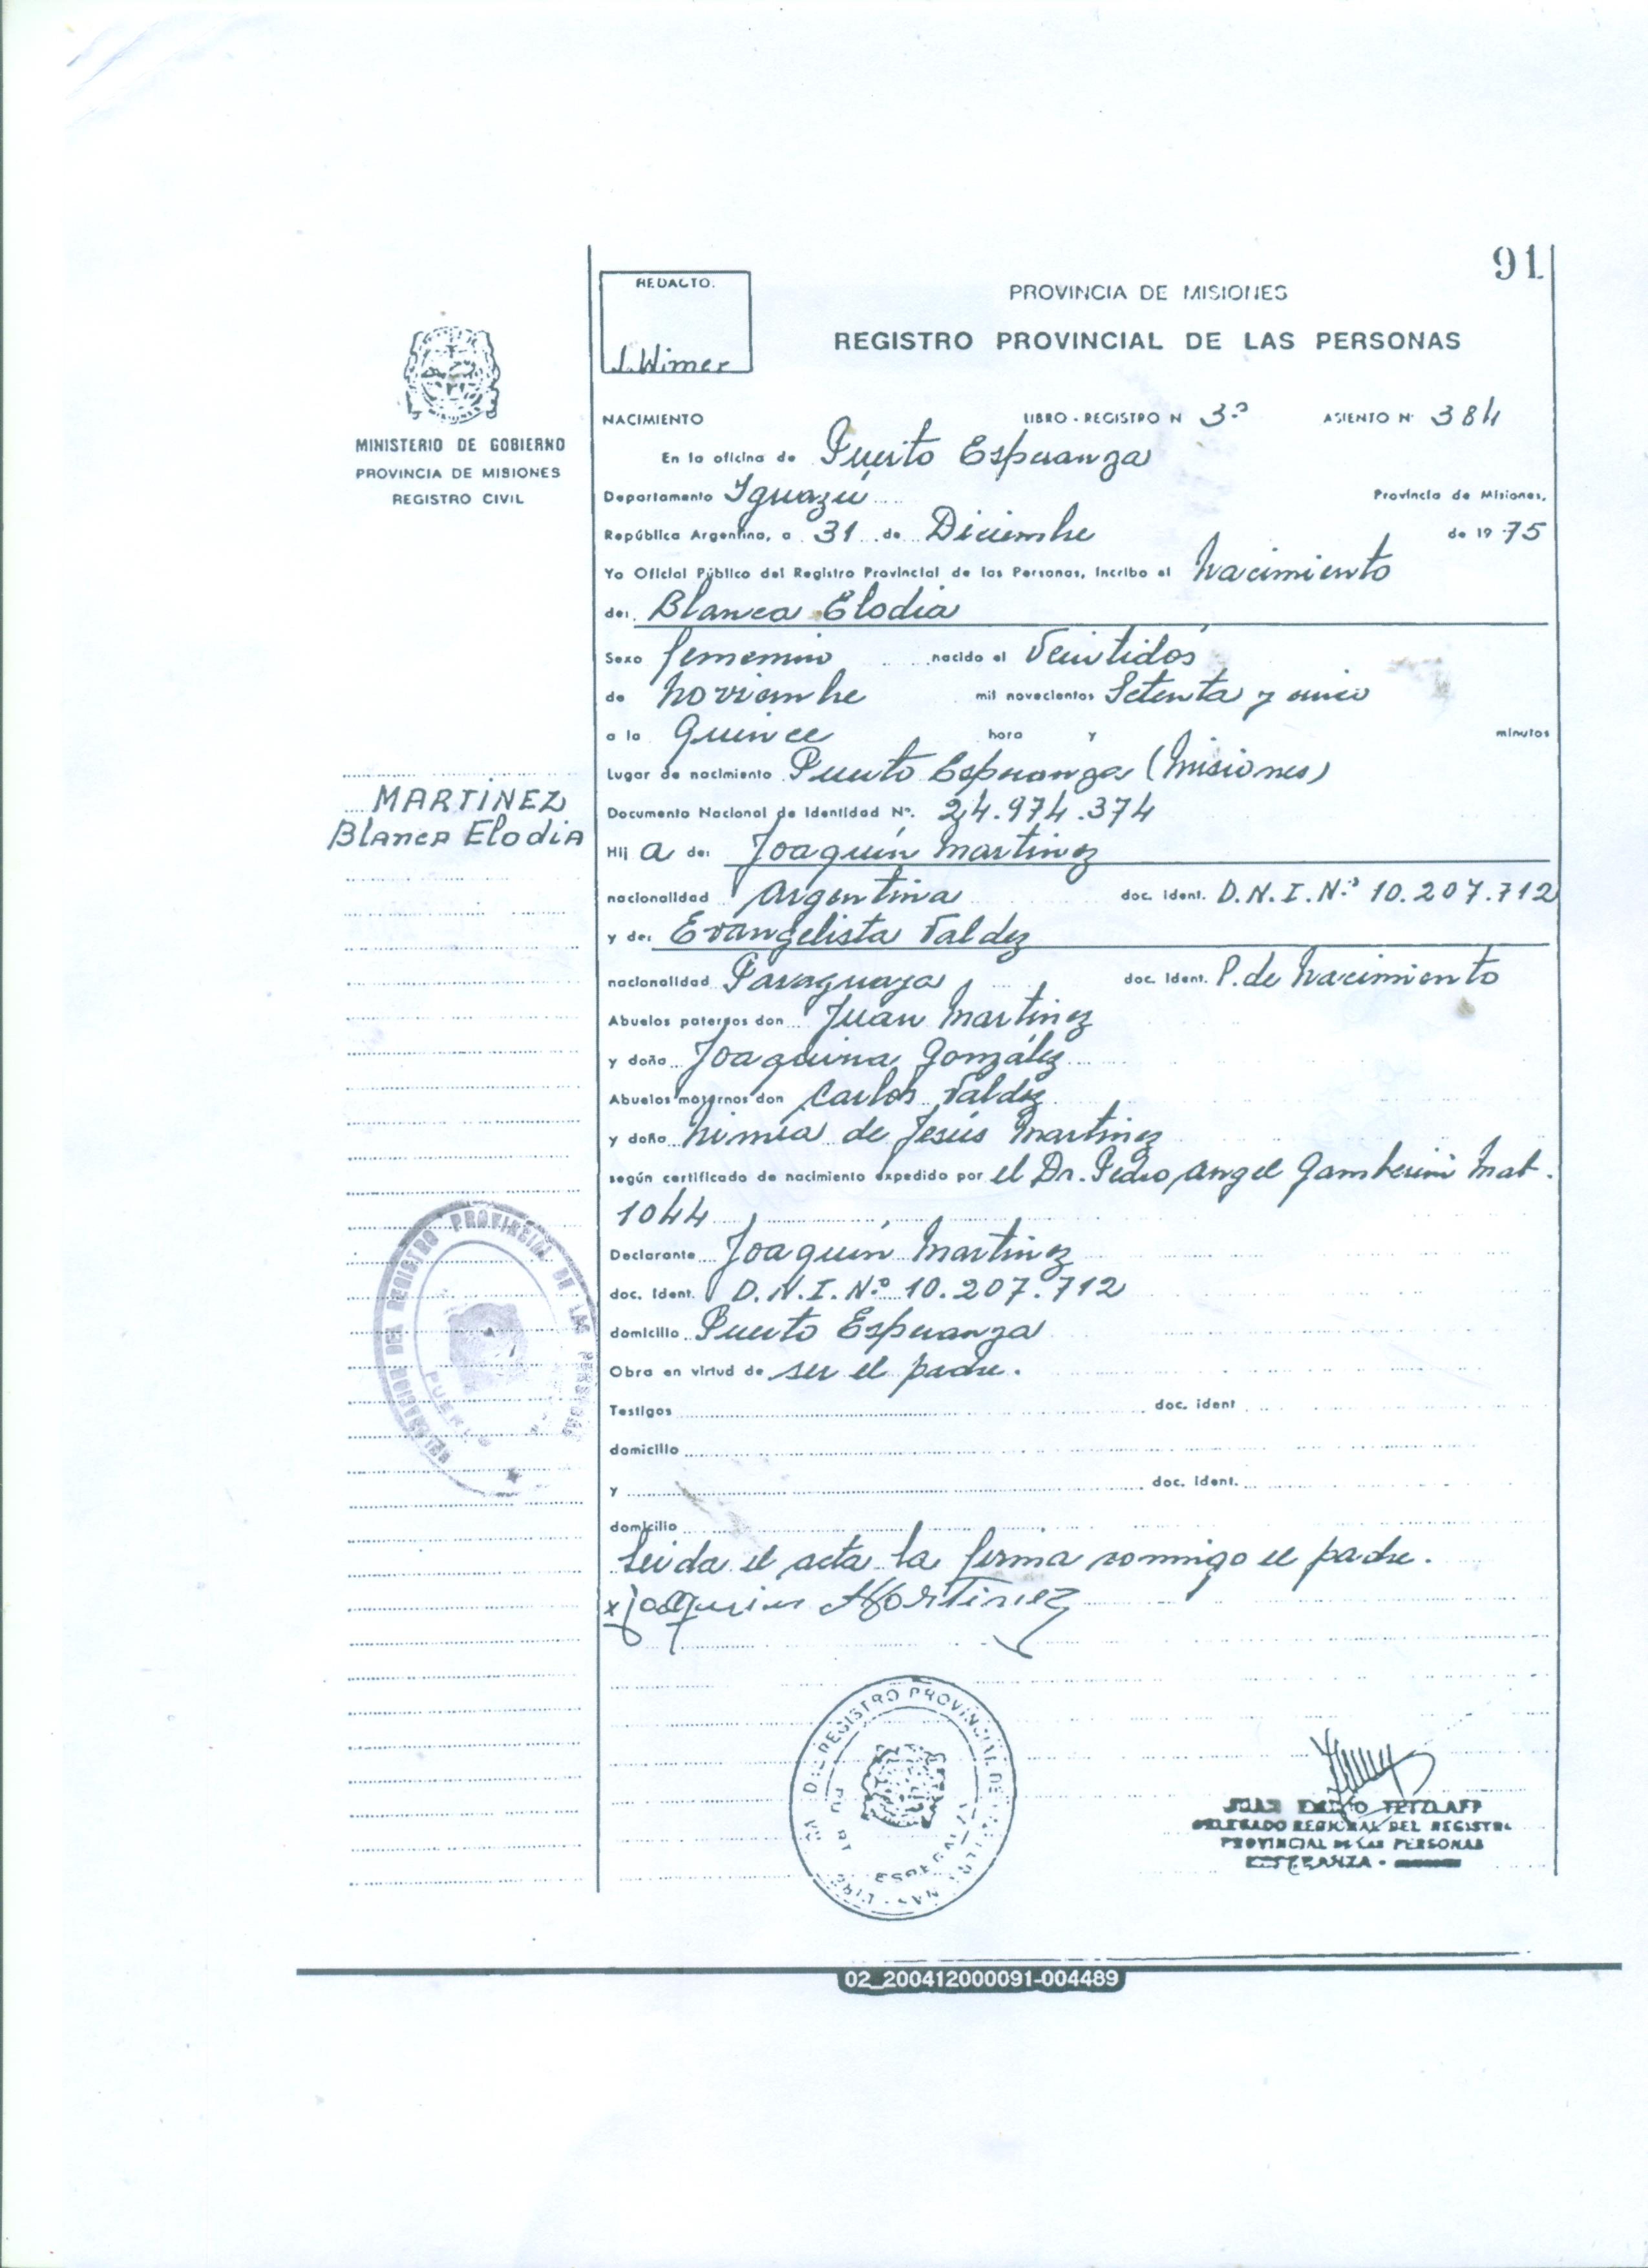 91
REDACTO.
J. Wimer
PROVINCIA DE MISIONES
REGISTRO PROVINCIAL DE LAS PERSONAS
MINISTERIO DE GOBIERNO
PROVINCIA DE MISIONES
REGISTRO CIVIL
NACIMIENTO LIBRO - REGISTRO N 3º ASIENTO Nº 384
En la oficina de Puerto Esperanza
Departamento Iguazú Provincia de Misiones,
República Argentina, a 31 de Diciembre de 19 75
Yo Oficial Público del Registro Provincial de las Personas, incribo el Nacimiento
de: Blanca Elodia
Sexo femenino nacido el Veintidós
de Noviembre mil novecientos Setenta y cinco
a la Quince hora y minutos
Lugar de nacimiento Puerto Esperanza (Misiones)
MARTINEZ
Blanca Elodia
Documento Nacional de Identidad Nº. 24.974.374
Hij a de: Joaquín Martinez
nacionalidad Argentina doc. ident. D.N.I.Nº 10.207.712
y de: Evangelista Valdez
nacionalidad Paraguaya doc. ident. P. de Nacimiento
Abuelos paternos don Juan Martinez
y doña Joaquina González
Abuelos maternos don Carlos Valdéz
y doña Nimia de Jesús Martinez
según certificado de nacimiento expedido por el Dr. Pedro Angel Gamberini Mat.
1044
Declarante Joaquín Martinez
doc. ident. D.N.I.Nº 10.207.712
domicilio Puerto Esperanza
Obra en virtud de ser el padre.
Testigos doc. ident
domicilio
y doc. ident.
domicilio
Leida el acta la firma conmigo el padre.
x Joaquin Martinez
DELEGACION DEL REGISTRO PROVINCIAL DE LAS PERSONAS
REGISTRO PROVINCIAL DE
TETZLAFF
DELEGADO REGIONAL DEL REGISTRO
PROVINCIAL DE LAS PERSONAS
ESPERANZA -
02_200412000091-004489